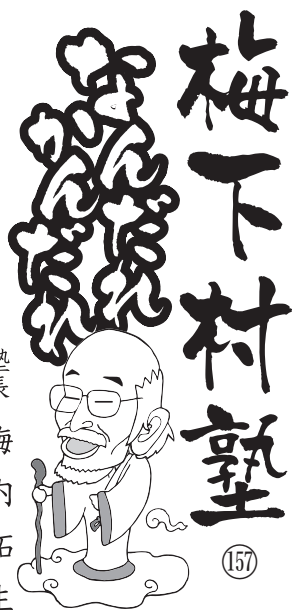 梅下村塾
157
なんだれ
かんだれ
塾長 梅内拓生